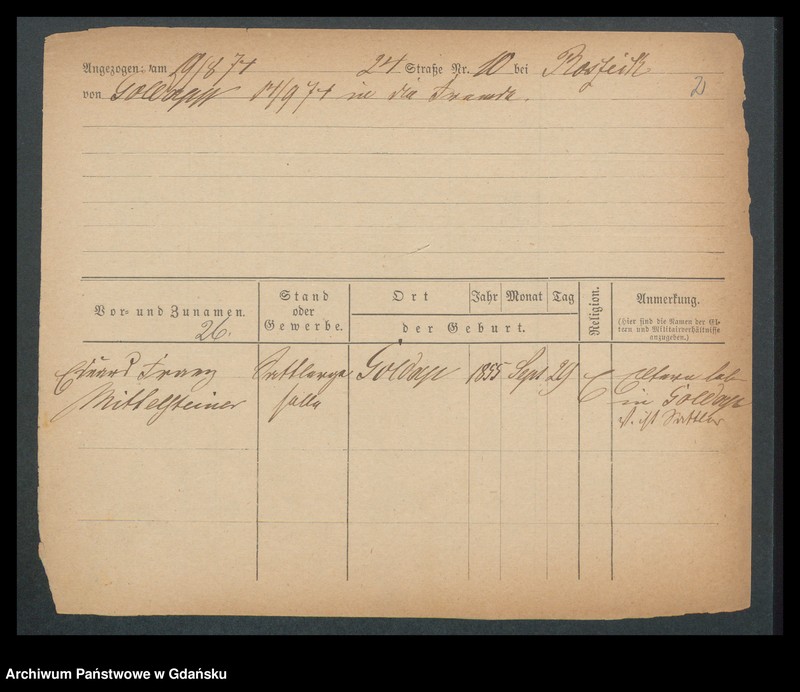 Angezogen: am 19/8 74 24 Straße Nr. 10 bei
2
von Goldapp 14/9 74 in die Fremde.
Vor- und Zunamen.
26.
Stand
oder
Gewerbe.
Ort
Jahr Monat Tag
der Geburt.
Religion.
Anmerkung.
(Hier sind die Namen der El-
tern und Militairverhältnisse
anzugeben.)
Eduard Franz
Mittelsteiner
Sattlerge
selle
Goldap 1855 Sept 29 E
Eltern leb
in Goldap
V. ist Sattler
Archiwum Państwowe w Gdańsku